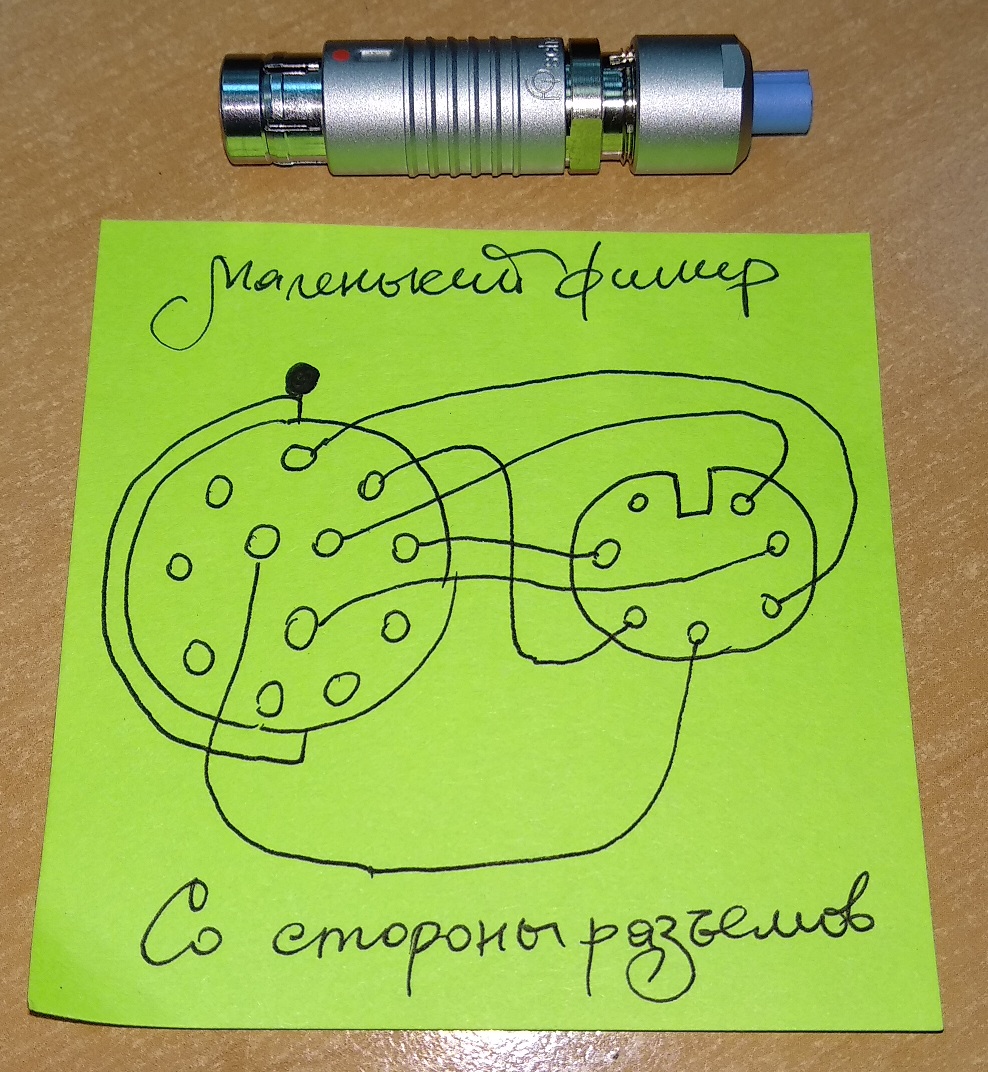 Маленький фишер
Со стороны разъемов